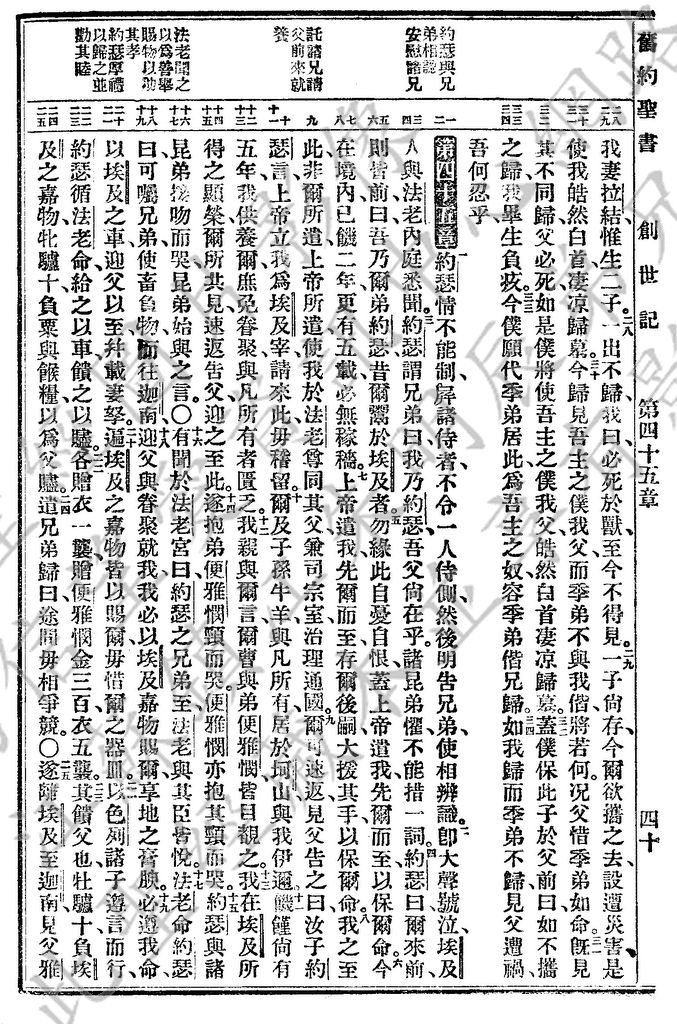 舊約聖書 創世記 第四十五章 四十
約瑟與兄弟相認安慰諸兄
託諸兄請父前來就養
法老聞之以爲善舉賜物以助其孝
約瑟厚禮以歸之並勸其睦
我妻拉結惟生二子一出不歸我曰必死於獸至今不得見一子尙存今爾欲攜之去設遭災害是
使我皓然白首凄凉歸墓今歸見吾主之僕我父而季弟不與我偕將若何況父惜季弟如命旣見
其不同歸父必死如是僕將使吾主之僕我父皓然白首凄凉歸墓蓋僕保此子於父前曰如不攜
之歸我畢生負疚今僕願代季弟居此爲吾主之奴容季弟偕兄歸如我歸而季弟不歸見父遭禍
吾何忍乎
第四十五章 約瑟情不能制屛諸侍者不令一人侍側然後明告兄弟使相辨識卽大聲號泣埃及
人與法老內庭悉聞約瑟謂兄弟曰我乃約瑟吾父尙在乎諸昆弟懼不能措一詞約瑟曰爾來前
則皆前曰吾乃爾弟約瑟昔爾鬻於埃及者勿緣此自憂自恨蓋上帝遣我先爾而至以保爾命今
在境內已饑二年更有五載必無稼穡上帝遣我先爾而至存爾後嗣大援其手以保爾命我之至
此非爾所遣上帝所遣使我於法老尊同其父兼司宗室治理通國爾可速返見父告之曰汝子約
瑟言上帝立我爲埃及宰請來此毋稽留爾及子孫牛羊與凡所有居於坷山與我伊邇饑饉尙有
五年我供養爾庶免眷聚與凡所有者匱乏我親與爾言爾曹與弟便雅憫皆目覩之我在埃及所
得之顯榮爾所共見速返告父迎之至此遂抱弟便雅憫頸而哭便雅憫亦抱其頸而哭約瑟與諸
昆弟接吻而哭昆弟始與之言〇有聞於法老宮曰約瑟之兄弟至法老與其臣皆悅法老命約瑟
曰可囑兄弟使畜負物而往迦南迎父與眷聚就我我必以埃及嘉物賜爾享地之膏腴必遵我命
以埃及之車迎父以至幷載妻孥遍埃及之嘉物皆以賜爾毋惜爾之器皿以色列諸子遵言而行
約瑟循法老命給之以車饋之以贐各贈衣一襲贈便雅憫金三百衣五襲其饋父也牡驢十負埃
及之嘉物牝驢十負粟與餱糧以爲父贐遣兄弟歸曰途間毋相爭競〇遂離埃及至迦南見父雅